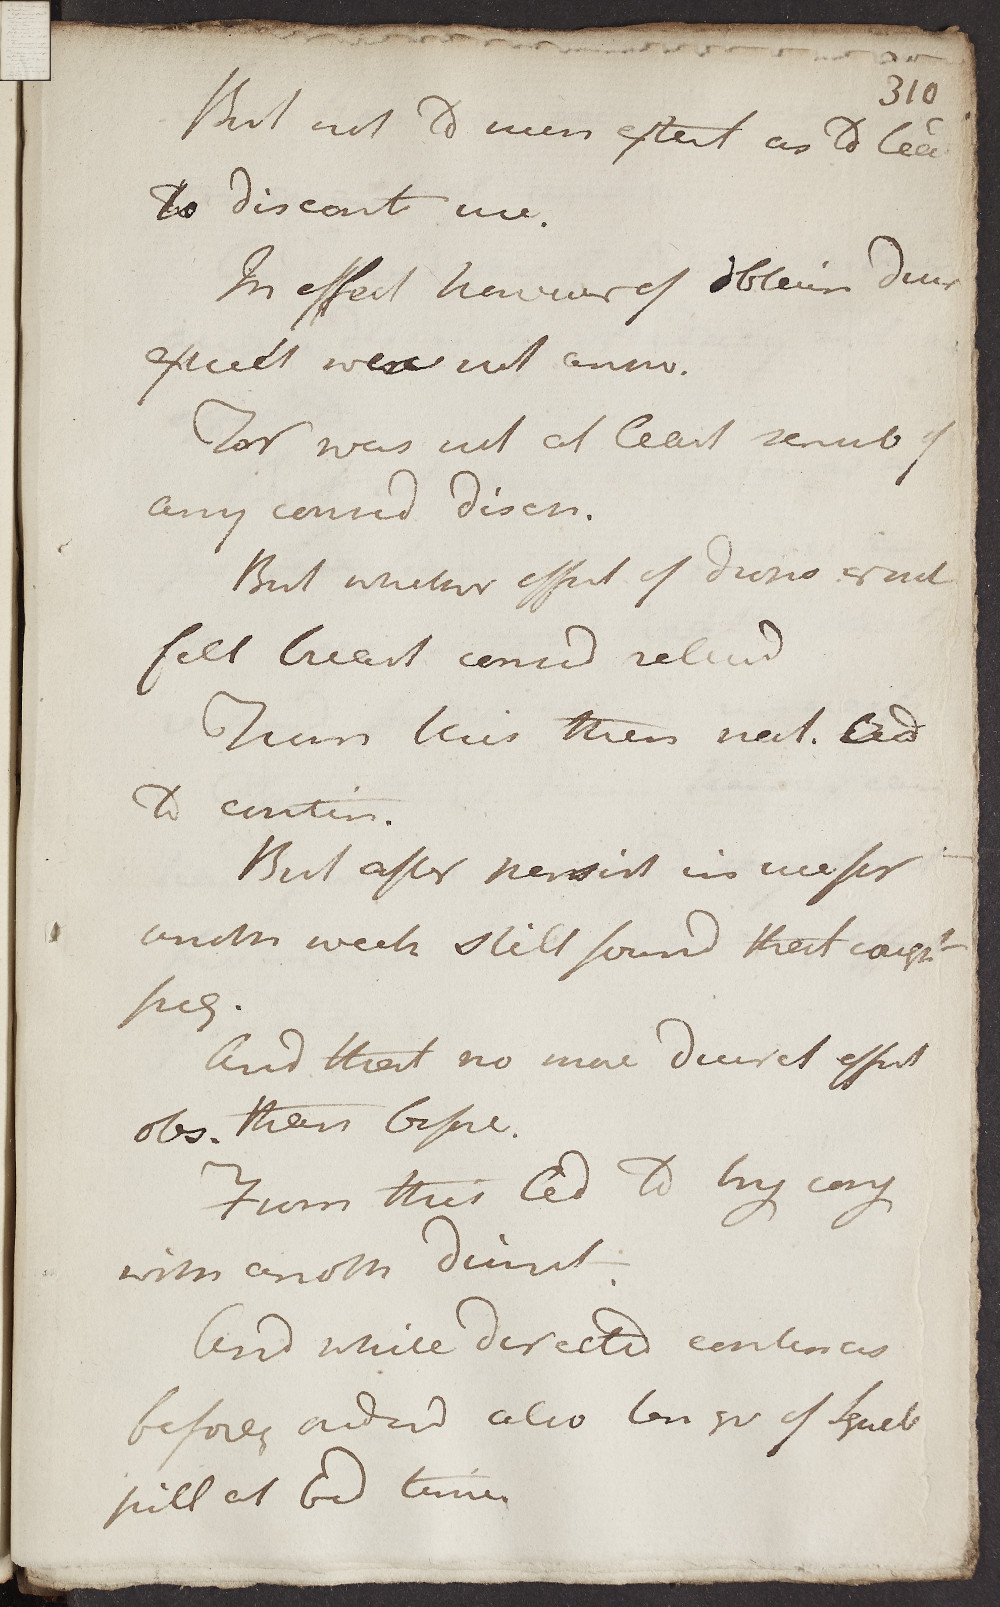 310
But not to such extent as to lea
to discont use.
In effect however of obtain diur
expect were not answ.
For was not at least sensib of
any consid disch.
But whether effect of diures or not
felt breast consid reliev'd
From this then nat. led
to contin.
But after persist in use for
anoth week still found that cough
freq.
And that no more diuret effect
obs. than before.
From this led to try conj
with anoth diuret.
And while directed contin as
before, ordered also ten gr of squill
pill at bed time.